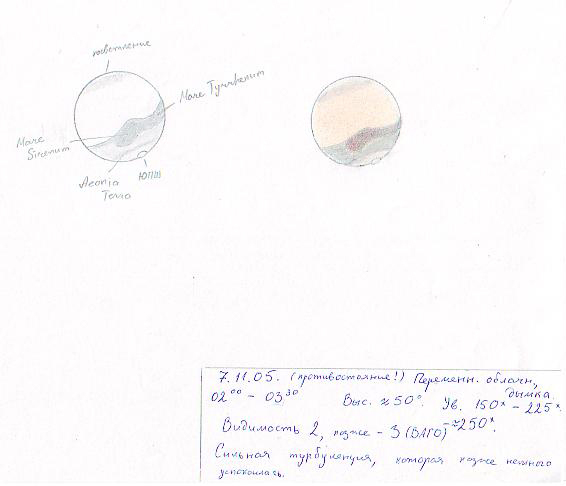 посветление
Mare Tyrrhenum
Mare
Sirenum
Aeonia
Terra
ЮПШ
7.11.05. (противостояние!) Переменн. облачн,
дымка.
02⁰⁰ - 03³⁰ Выс. ≈ 50°. Ув. 150ˣ - 225ˣ.
Видимость 2, позже - 3 (ВАГО) - ≈250ˣ.
Сильная турбуленция, которая позже немного
успокоилась.